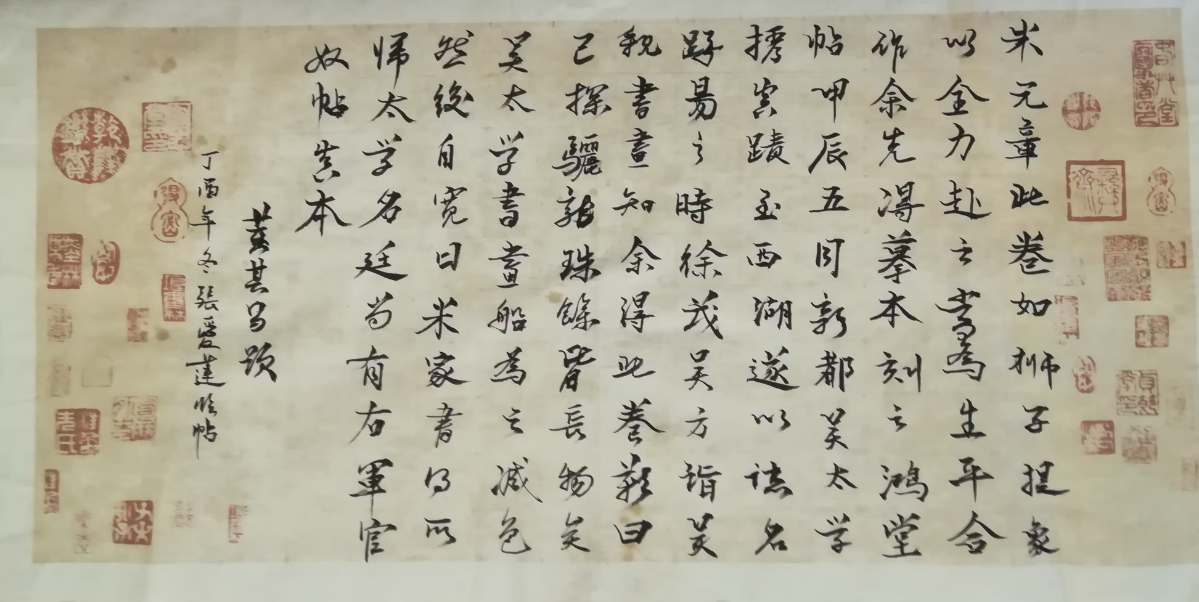 米元章此卷如狮子捉象
以全力赴之當為生平合
作余先得摹本刻之鴻堂
帖中甲辰五月新都吳太学
攜真蹟至西湖遂以諸名
蹟易之時徐茂吳方詣吳
觀書畫知余得此卷歎曰
已探驪龍珠餘皆長物矣
吳太学書畫船為之減色
然後自寬曰米家書得所
歸太学名廷尚有右軍官
奴帖真本
董其昌題
丁酉年冬張愛蓮临帖